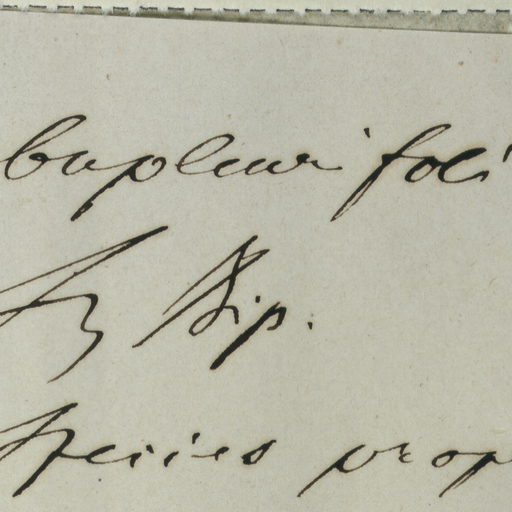 bupleurifoli
Sz Bip.
Species prop